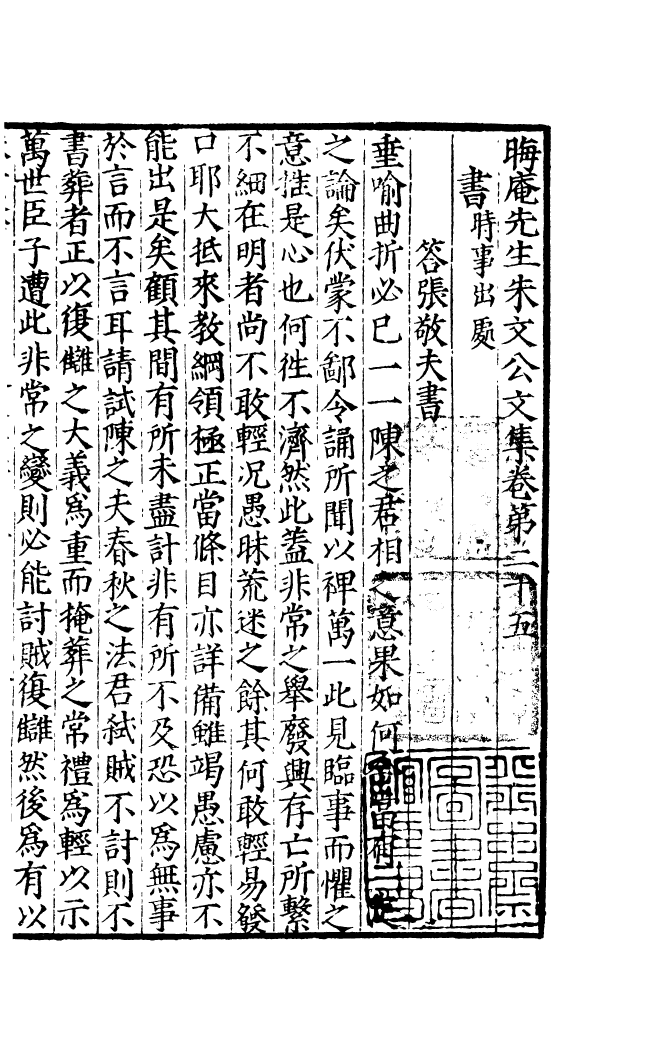 晦庵先生朱文公文集卷第二十五
書時事出處
答張敬夫書
垂喻曲折必已一一陳之君相之意果如何
之論矣伏蒙不鄙令誦所聞以裨萬一此見臨事而懼之
意推是心也何徃不濟然此蓋非常之舉廢興存亡所繫
不細在明者尚不敢輕况愚昧荒迷之餘其何敢輕易發
口耶大抵來教綱領極正當條目亦詳備雖竭愚慮亦不
能出是矣顧其間有所未盡計非有所不及恐以為無事
於言而不言耳請試陳之夫春秋之法君弑賊不討則不
書葬者正以復讎之大義為重而掩葬之常禮為輕以示
萬世臣子遭此非常之變則必能討賊復讎然後為有以